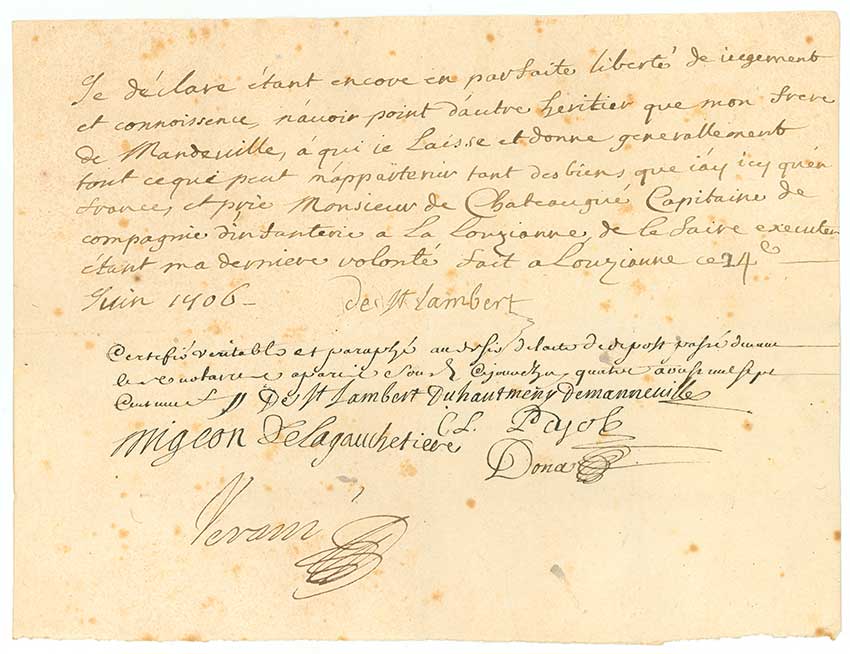 Je déclare étant encore en parfaite liberté de iugement
et connoissence, n'auoir point d'autre heritier que mon frere
de Mandeuille, á qui ie Laisse et donne generallement
tout ce qui peut m'appartenir tant des biens que i'áy icy qu'en
france, et prie Monsieur de Chateaugué Capitaine de
compagnie d'infanterie a La Louzianne de le faire executer
étant ma derniere volonté fait a Louzianne ce 14e
Juin 1706 -
de St Lambert
Certiffié veritable et paraphé au desir de lacte de depost passé deuant
les notaires a paris ce jourdhuy quatre aoust mil sept
Cent neuf De St Lambert Duhautmeny Demanneuille
Migeon Delagauchetiere C.L. Payol
Dona
Verani